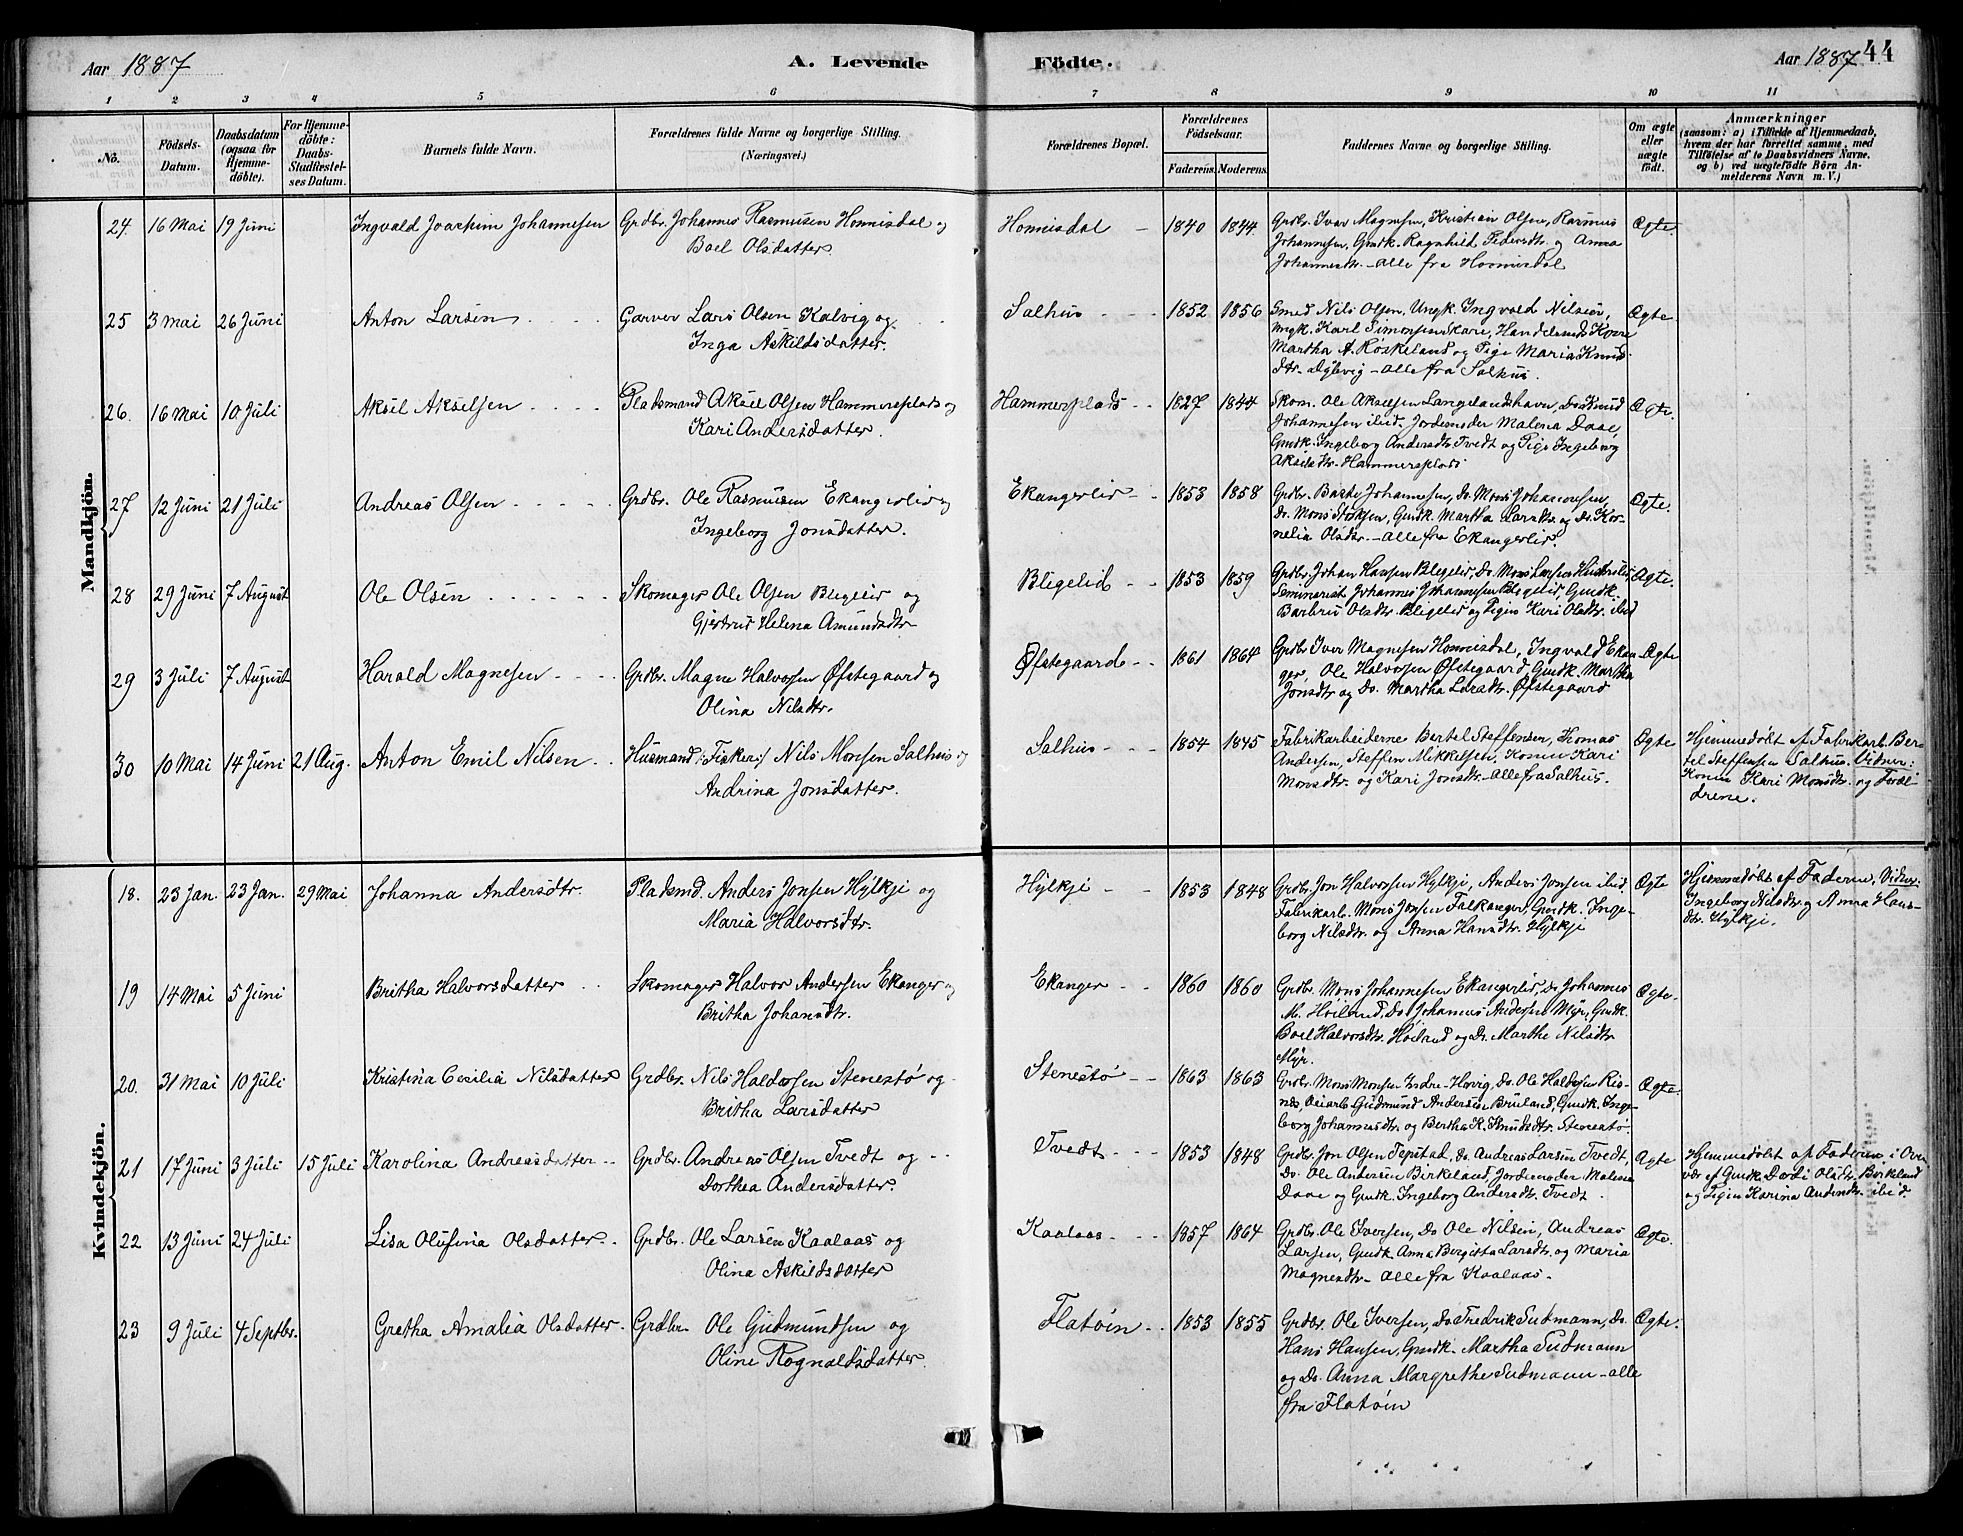 Aar 1887 A. Levende Födte. Aar 1887 44
1 2 3 4 5 6 7 8 9 10 11
No. Födsels-Datum. Daabsdatum (ogsaa for Hjemme-döbte). For Hjemme-döbte: Daabs-Stadfæstel-ses Datum. Barnets fulde Navn. Forældrenes fulde Navne og borgerlige Stilling. (Næringsvei.) Forældrenes Bopæl. Forældrenes Födselsaar. Faderens. Moderens. Faddernes Navne og borgerlige Stilling. Om ægte eller uægte födt. Anmærkninger (saasom: a) i Tilfælde af Hjemmedaab, hvem der har forrettet samme, med Tilföielse af to Daabsvidners Navne, og b) ved uægtefödte Börn An-melderens Navn m. V.)
Mandkjön.
24. 16 Mai 19 Juni Ingvald Joachim Johannesen Grdbr. Johannes Rasmusen Honnisdal og Honnisdal 1840 1844 Grdbr. Ivar Magnesen, Kristian Olsen, Rasmus Ægte.
Boel Olsdatter. Johannesen, Gmdk. Ragnhild Pedersdtr. og Anna
Johannesdtr. - alle fra Honnisdal
25 3 Mai 26 Juni Anton Larsen Garver Lars Olsen Kalvig og Salhus 1852 1856 Smed Nils Olsen, Ungk. Ingvald Nilsen, Ægte
Inga Askildsdatter. Ungk. Karl Simonsen Kare, Handelsmds Kone
Martha A. Röskeland og Pige Maria Knuds-
dtr. Dyevig - alle fra Salhus.
26. 16 Mai 10 Juli Aksel Akselsen Pladsmand Aksel Olsen Hammersplads og Hammersplads 1827 1844 Skom. Ole Akselsen Langelandshavn, Ægte.
Kari Andersdatter. Johannesen ibid. Jordemoder Malena Daae,
Gmdk. Ingeborg Andersdtr. Tvedt og Pige Ingeborg
Akselsdtr. Hammersplads
27 12 Juni 21 Juli Andreas Olsen Grdbr. Ole Rasmusen Ekangerlid og Ekangerlid 1853 1858 Grdbr. Johannesen, Do. Mons Johannesen, Ægte.
Ingeborg Jonsdatter. Do. Mons Gmdk. Martha Larsdtr. og Do. Kor-
nelia Olsdtr. - alle fra Ekangerlid.
28 29 Juni 7 August Ole Olsen Skomager Ole Olsen Blegelid og Bligelid 1853 1859 Grdbr. Johan Hansen Blegelid, Do. Mons Ægte.
Gjertrud Helena Amundsdtr Seminarist Johannes Johannesen Blegelid, Gmdk.
Barbru Olsdtr. Blegelid og Pigen Kari Olsdtr. ibid
29 3 Juli 7 August Harald Magnesen Grdbr. Magne Halvorsen Øfstegaard og Øfstegaard 1861 1864 Grdbr Iver Magnesen Honnisdal, Ingvald Ekan- Ægte
Olina Nilsdtr. ger, Ole Halvorsen Øfstegaard, Gmdk. Martha
Jonsdtr og Do. Martha Larsdtr. Øfstegaard
30 10 Mai 14 Juni 21 Aug. Anton Emil Nilsen Husmand /: Fisker :/ Nils Monsen Salhus og Salhus 1854 1845 Fabrikarbeiderne Bertel Steffensen, Thomas Ægte Hjemmedøbt af Fabrikarb. Ber-
Andrina Jonsdatter. Andersen, Steffen Mikkelsen, Konen Kari tel Steffensen Salhus. Vidner:
Monsdtr. og Kari Jonsdtr. - alle fra Salhus. Konen Kari Monsdtr. og Foræl-
drene.
Kvindekjön.
18. 23 Jan. 23 Jan. 29 Mai Johanna Andersdtr. Pladsmd. Anders Jonsen Hylkje og Hylkje 1853 1848 Grdbr. Jon Halvorsen Hylkje, Anders Jonsen ibid. Ægte Hjemmedøbt af Faderen, Vidner:
Maria Halvorsdtr. Fabrikarb. Mons Jonsen Falkanger, Gmdk. Inge- Ingeborg Nilsdtr. og Anna Hans-
borg Nilsdtr. og Anna Hansdtr. Hylkje dtr. Hylkje.
19 14 Mai 5 Juni Britha Halvorsdatter Skomager Halvor Andersen Ekanger og Ekanger 1860 1860 Grdbr. Mons Johannesen Ekangerlid, Do. Johannes Ægte.
Britha Johansdtr. M. Höiland, Do. Johannes Andersen Myr, Gmdk.
Boel Halvorsdtr. Höiland og Do. Marthe Nilsdtr
Myr.
20. 31 Mai 10 Juli Kristina Cecilia Nilsdatter Grdbr. Nils Haldorsen Stenestø og Stenestø 1863 1863 Grdbr. Mons Monsen Indre-Hovig, Do. Ole Haldorsen Ris- Ægte
Britha Larsdatter nes, Veiarb. Gudmund Andersen Bruland, Gmdk. Inge-
borg Johannesdtr. og Bertha K. Knudsdtr. Stenestø.
21 17 Juni 3 Juli 15 Juli Karolina Andreasdatter Grdbr. Andreas Olsen Tvedt og Tvedt 1853 1848 Grdbr. Jon Olsen Tepstad, Do. Andreas Larsen Tvedt, Ægte Hjemmedøbt af Faderen i Over-
Dorthea Andersdatter. Do. Ole Andersen Birkeland, Jordemoder Malena vær af Gmdk. Dordi Olsdtr. Birkeland
Daae og Gmdk. Ingeborg Andersdtr. Tvedt. og Pigen Karina Andersdtr. ibid.
22 13 Juni 24 Juli Lisa Olufina Olsdatter Grdbr. Ole Larsen Kaalaas og Kaalaas 1857 1864 Grdbr. Ole Iversen, Do Ole Nilsen, Andreas Ægte.
Olina Askildsdatter Larsen, Gmdk. Anna Bergitta Larsdtr. og Maria
Magnesdtr - alle fra Kaalaas -
23 9 Juli 4 Septbr. Gretha Amalia Olsdatter Grdbr. Ole Gudmundsen og Flatøin 1853 1855 Grdbr. Ole Iversen, Do Fredrik Sudmann, Do. Ægte.
Oline Rognaldsdatter. Hans Hansen, Gmdk. Martha Sudmann
og Do. Anna Margrethe Sudmann - alle
fra Flatøin